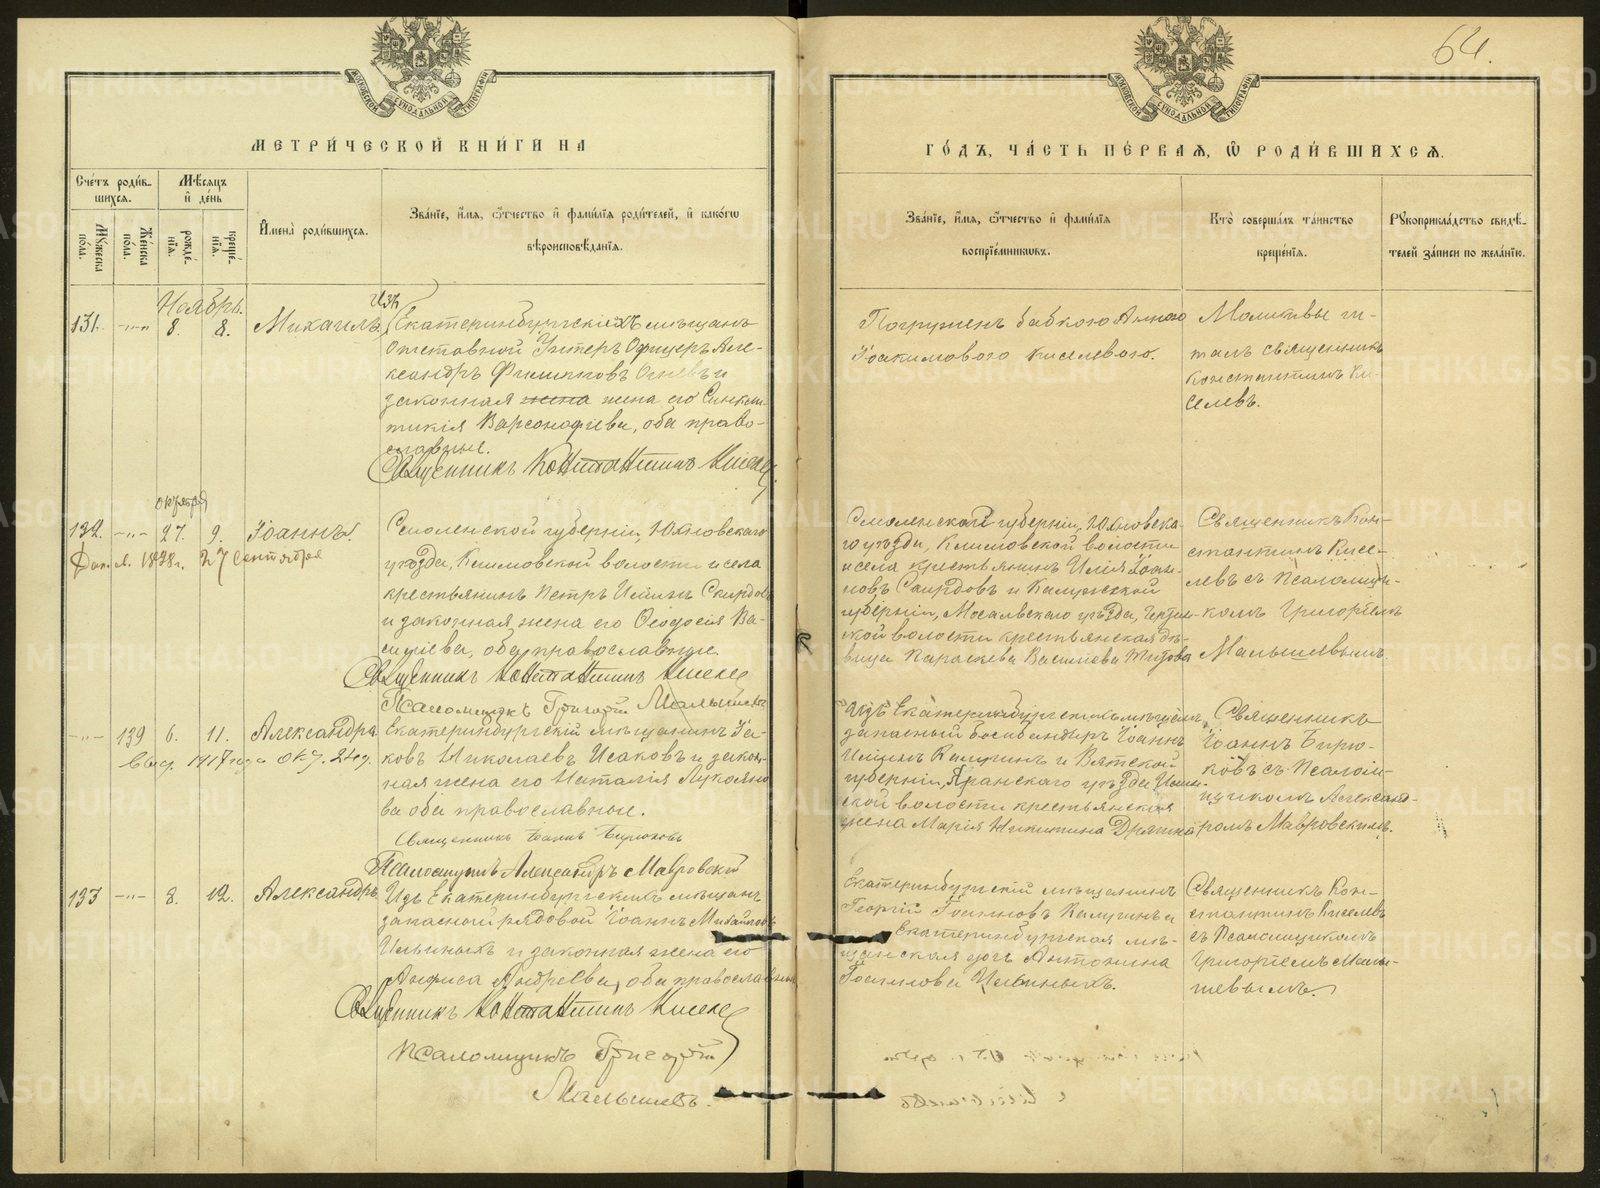 64.
МЕТРИ́ЧЕСКОЙ КНИ́ГИ НА
ГО́ДЪ, ЧА́СТЬ ПЕ́РВАѦ, Ѡ҆ РОДИ́ВШИХСѦ.
Сче́тъ роди́в-
шихсѧ.
Мѣ́сѧцъ
и҆ де́нь
Мꙋ́жеска
по́ла.
Же́нска
по́ла.
рожде́-
нїѧ.
креще́-
нїѧ.
И҆мена̀ роди́вшихсѧ.
Зва́нїе, и҆́мѧ, ѻ҆́тчество и҆ фами́лїѧ роди́телей, и҆ како́гѡ
вѣроисповѣ́данїѧ.
Зва́нїе, и҆́мѧ, ѻ҆́тчество и҆ фами́лїѧ
воспрїе́мникѡвъ.
Кто̀ соверша́лъ та́инство
креще́нїѧ.
Рꙋкоприкла́дство свидѣ́-
телей за́писи по жела́нїю.
Ноябрь.
131. -"- 8. 8. Михаилъ.
Изъ
Екатеринбургскихъ мѣщанъ
Отставной Унтеръ Офицеръ Але-
ксандръ Филиповъ и
законная жена жена его Синкли-
тикія Варсонофіева, оба право-
славные.
Священникъ Константинъ Киселевъ
Погруженъ бабкою Анною
Іоакимового Киселевого.
Молитвы чи-
талъ священникъ
Константинъ Ки-
селевъ.
октября
132. -"- 27. 9. Іоаннъ.
27 сентября
Смоленской губерніи, Юхновскаго
уѣзда, Климовской волости и села
крестьянинъ Петръ Ильинъ
и законная жена его Ѳеодосія Ва-
силіева, оба православные.
Священникъ Константинъ Киселевъ
Псаломщикъ Григорій Малышевъ
Смоленской губерніи, Юхновска-
го уѣзда, Климовской волости
и села крестьянинъ Илія Іоан-
новъ и Калужской
губерніи, Мосальскаго уѣзда,
ской волости крестьянская дѣ-
вица Параскева Василіева Титова
Священникъ Кон-
стантинъ Кисе-
левъ съ Псаломщи-
комъ Григоріемъ
Малышевымъ.
-"- 139 6. 11. Александра
1917 года окт. 24 д.
Екатеринбургскій мѣщанинъ Іа-
ковъ Николаевъ Исаковъ и закон-
ная жена его Наталія Лукояно-
ва оба православные.
Священникъ Іоаннъ Бирюковъ
Псаломщикъ Александръ Мавровскій
Изъ Екатеринбургскихъ мѣщанъ,
запасный бомбандиръ Іоаннъ
Ильинъ Калугинъ и Вятской
губерніи, Яранскаго уѣзда,
ской волости крестьянская
жена Марія Никитина
Священникъ
Іоаннъ Бирю-
ковъ съ Псалом-
щикомъ Александ-
ромъ Мавровскимъ.
133 -"- 8. 12. Александръ
Изъ Екатеринбургскихъ мѣщанъ
запасной рядовой Іоаннъ Михайловъ
Ильиныхъ и законная жена его
Анфиса Андреева, оба православные
Священникъ Константинъ Киселевъ
Псаломщикъ Григорій
Малышевъ.
Екатеринбургскій мѣщанинъ
Георгій Калугинъ и
Екатеринбургская мѣ-
щанская дочь Антонина
Ильиныхъ.
Священникъ Кон-
стантинъ Киселевъ
съ Псаломщикомъ
Григоріемъ Малы-
шевымъ.
METRIKI.GASO-URAL.RU